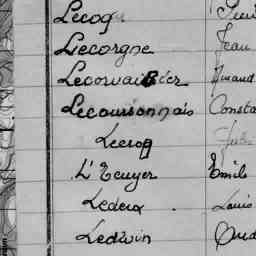 Lecoq
Lecorgne Jean
Lecorvaisier
Lecourionnais Consta
Lecoq
L'Ecuyer Emile
Ledeux Louis
Ledivin